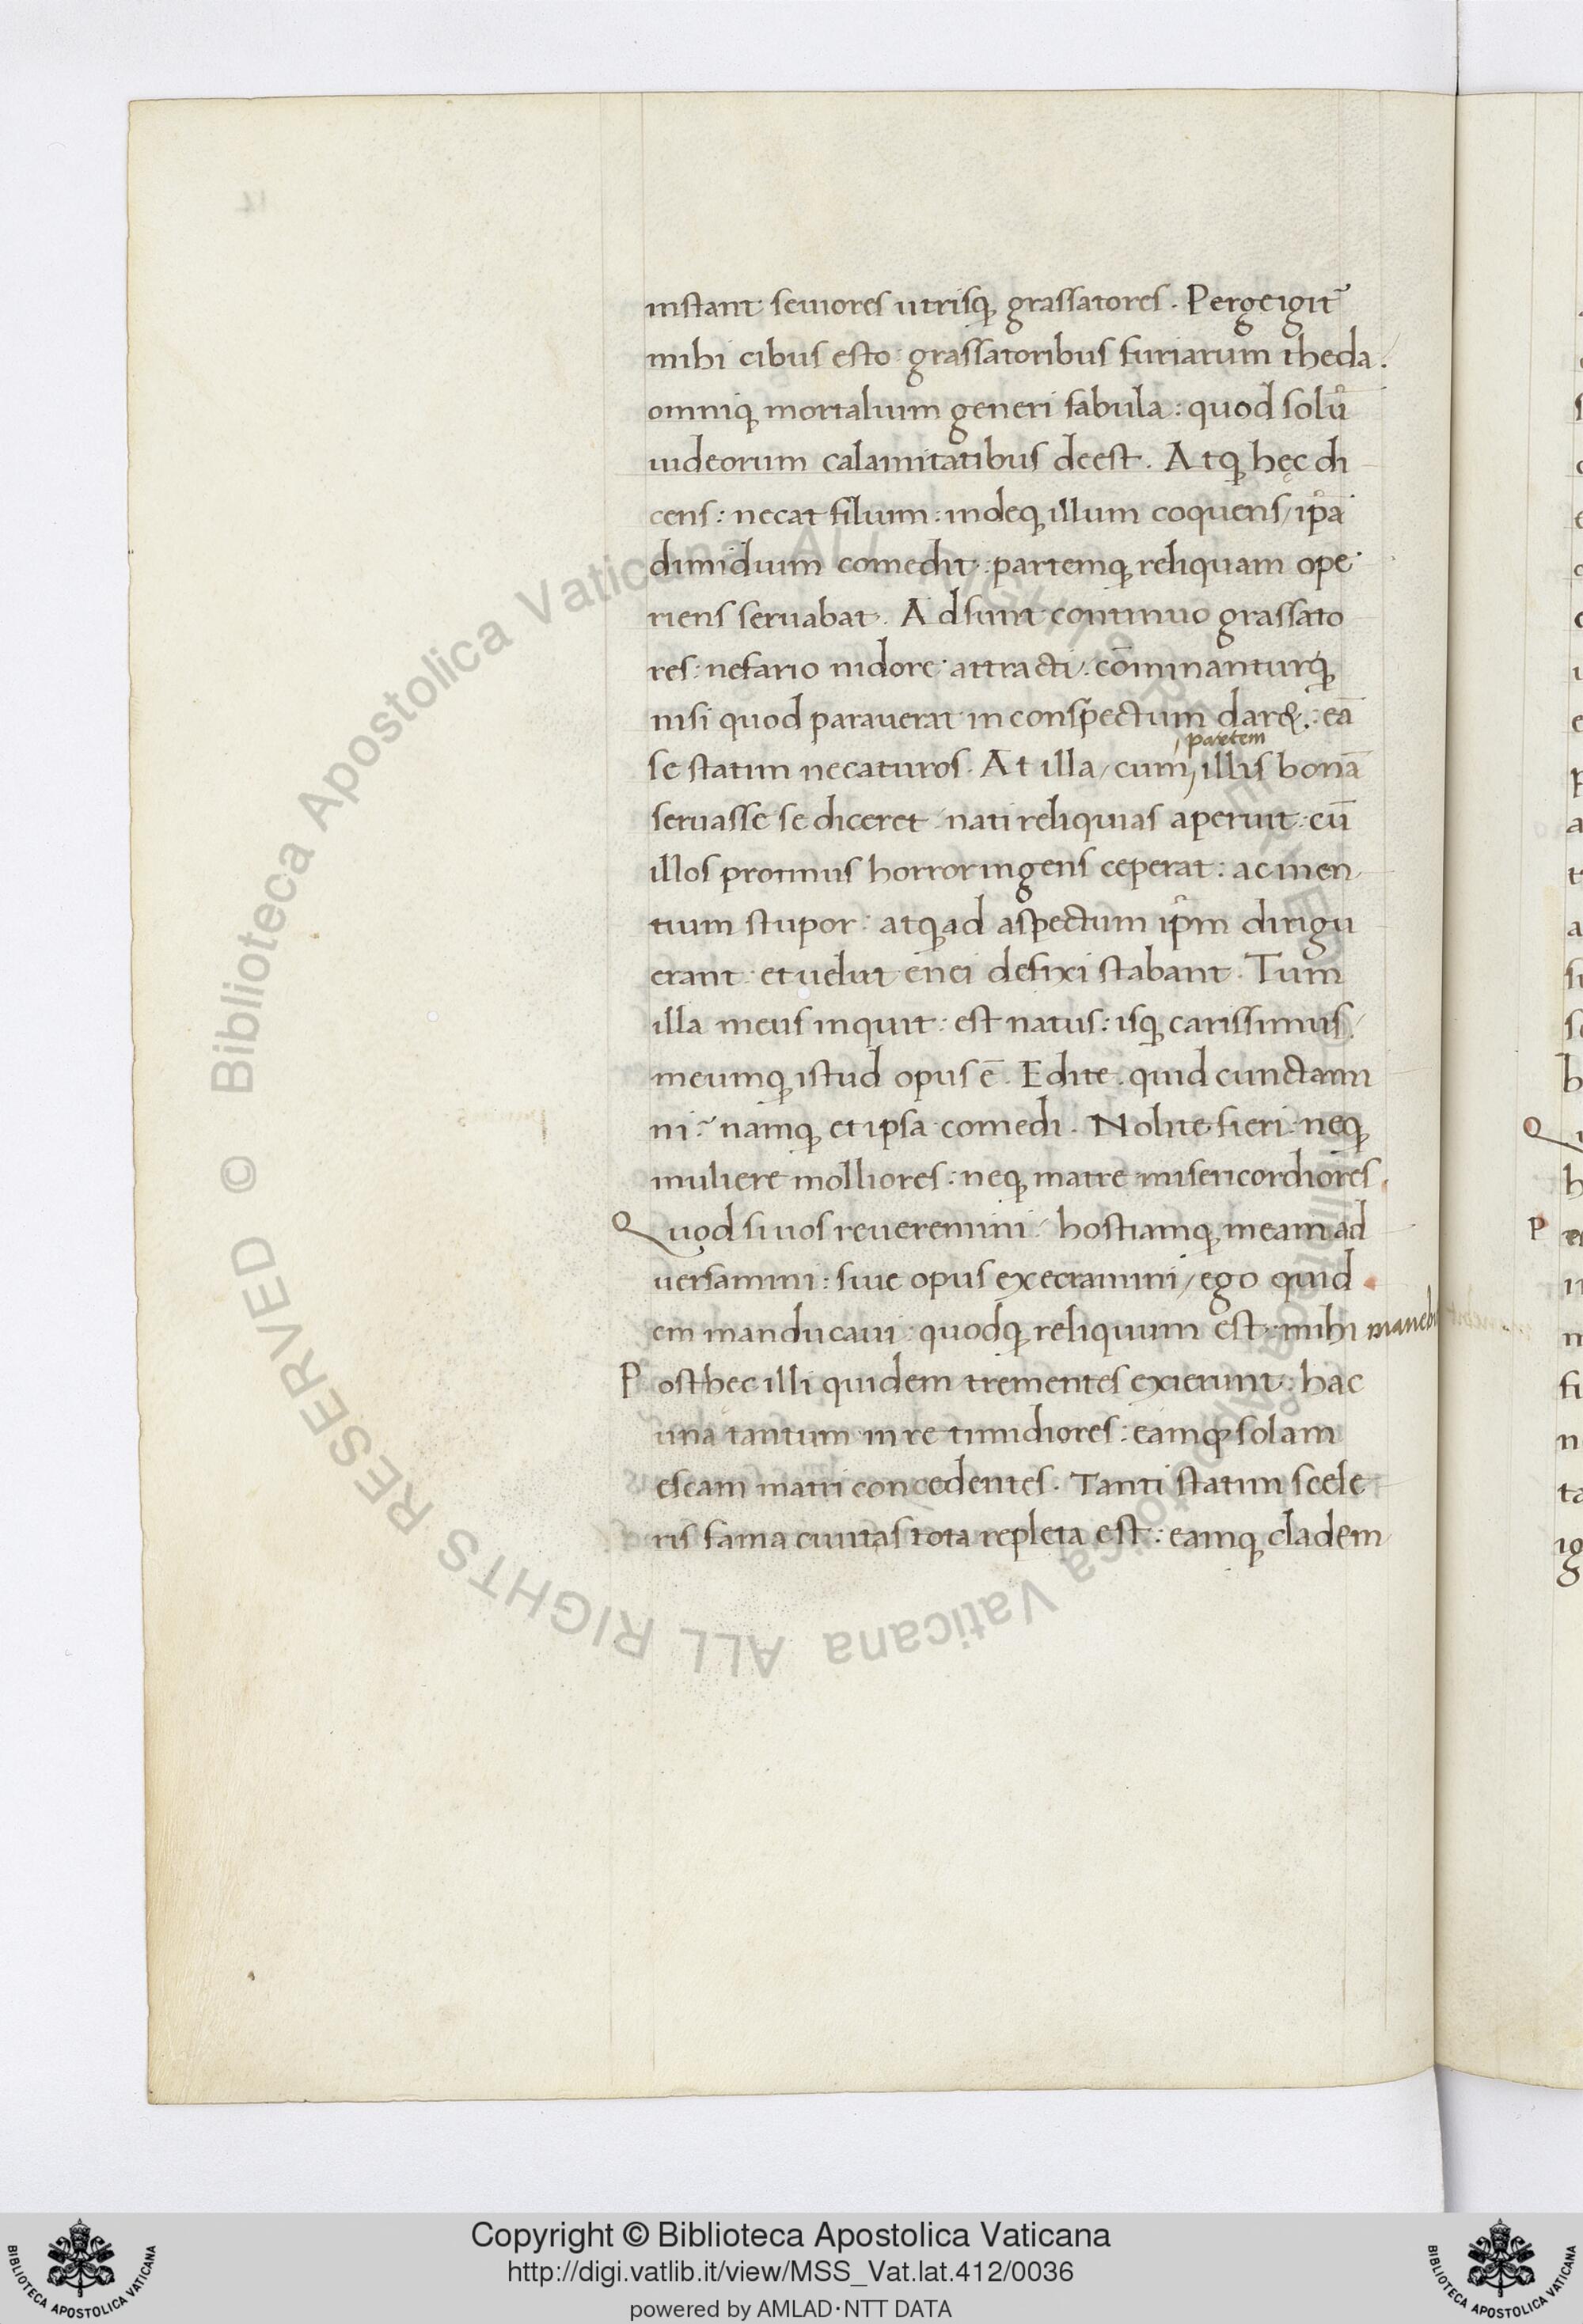 instant seuiores utrisq; grassatores. Perge igit᷑
mihi cibus esto: grassatoribus furiarum theda.
omniq; mortalium generi fabula: quod solũ
iudeorum calamitatibus deest. Atq; hęc di
cens: necat filium: indeq; illum coquens/ ip̃a
dimidium comedit: partemq; reliquam ope
riens seruabat. Adsunt continuo grassato
res: nefario nidore attracti: cōminanturq;
nisi quod parauerat in conspectum dar&: eā
se statim necaturos. At illa/ cum, illis bonā
partem
seruasse se diceret: nati reliquias aperuit: cū
illos protinus horror ingens ceperat: ac men
tium stupor: atq; ad aspectum ip̃m dirigu
erant: et uelut enei defixi stabant. Tum
illa meus inquit: est natus: isq; carissimus.
meumq; istud opus ē. Edite. quid cunctami
ni? namq; et ipsa comedi. Nolite fieri: neq;
muliere molliores: neq; matre misericordiores.
Quod si uos reueremini: hostiamq; meam ad
uersamini: siue opus execramini/ ego quid
em manducaui: quodq; reliquum est: mihi manebi
Post hec illi quidem trementes exierunt: hac
una tantum in re timidiores: eamq; solam
escam matri concedentes. Tanti statim scele
ris fama ciuitas tota repleta est: eamq; cladem
© Biblioteca Apostolica Vaticana ALL RIGHTS RESERVED
© Biblioteca Apostolica Vaticana ALL RIGHTS RESERVED
Copyright © Biblioteca Apostolica Vaticana
http://digi.vatlib.it/view/MSS_Vat.lat.412/0036
powered by AMLAD·NTT DATA
BIBLIOTECA APOSTOLICA VATICANA
BIBLIOTECA APOSTOLICA VATICANA